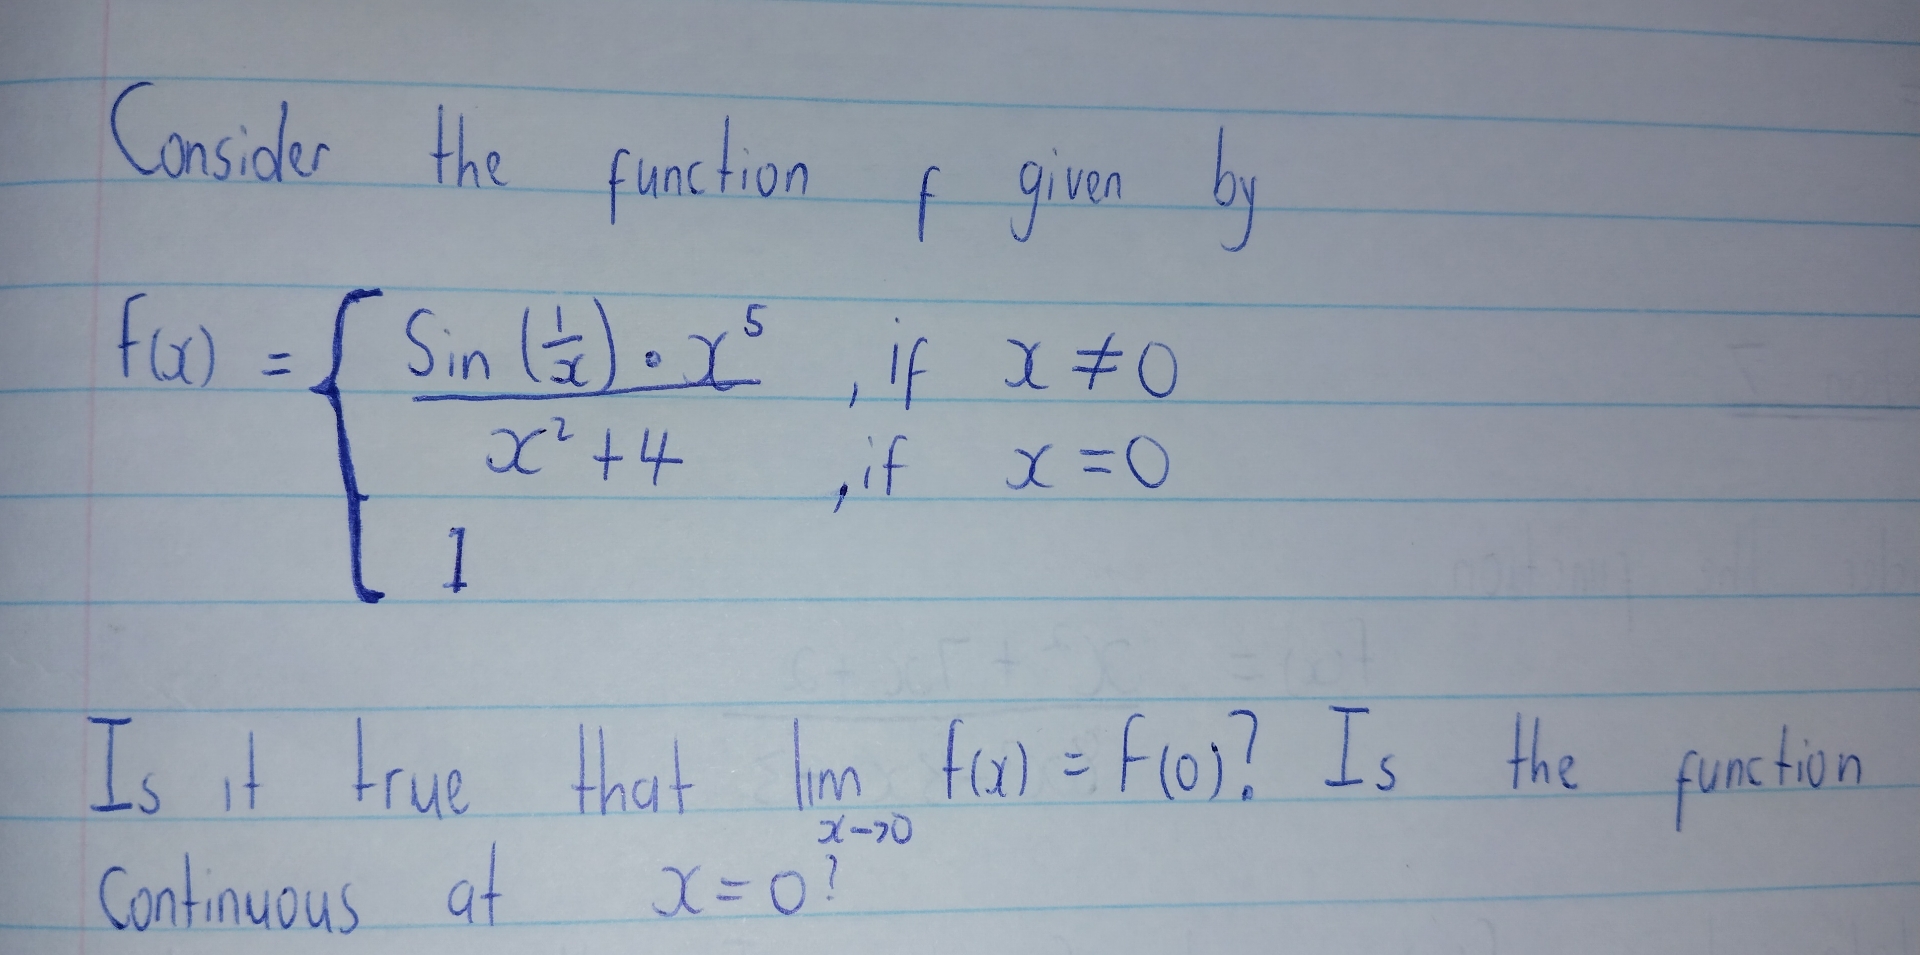 Consider the function f given by
f(x) = { Sin (1/x) • x⁵ , if x ≠ 0
x² + 4 , if x = 0
1
Is it true that lim f(x) = f(0)? Is the function
x→0
Continuous at x = 0?